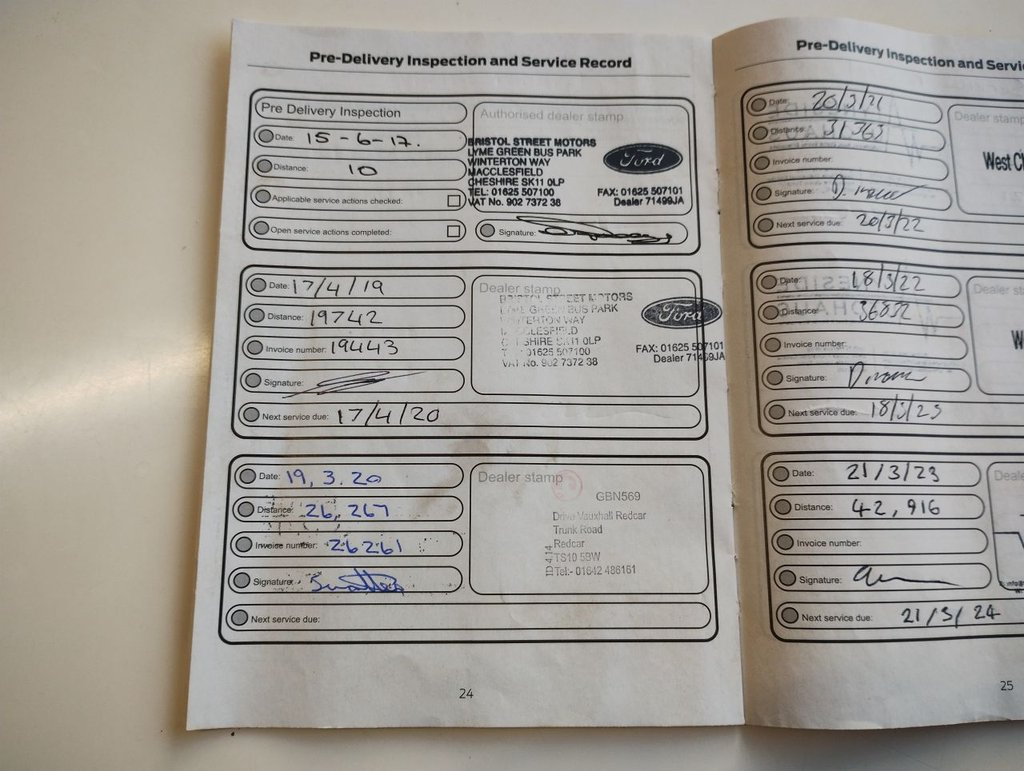 Pre-Delivery Inspection and Service Record
Pre Delivery Inspection
Date: 15-6-17.
Distance: 10
Applicable service actions checked:
Open service actions completed:
Authorised dealer stamp
BRISTOL STREET MOTORS
LYME GREEN BUS PARK
WINTERTON WAY
MACCLESFIELD
CHESHIRE SK11 0LP
TEL: 01625 507100
VAT No. 902 7372 38
Ford
FAX: 01625 507101
Dealer 71499JA
Signature:
Date: 17/4/19
Distance: 19742
Invoice number: 19443
Signature:
Next service due: 17/4/20
Dealer stamp
BRISTOL STREET MOTORS
LYME GREEN BUS PARK
WINTERTON WAY
MACCLESFIELD
CHESHIRE SK11 0LP
TEL: 01625 507100
VAT No. 902 7372 38
Ford
FAX: 01625 507101
Dealer 71499JA
Date: 19.3.20
Distance: 26,267
Invoice number: 26261
Signature:
Next service due:
Dealer stamp
GBN569
Drive Vauxhall Redcar
Trunk Road
Redcar
TS10 5BW
Tel:- 01642 486161
24
Pre-Delivery Inspection and Servi
Date: 20/3/21
Distance: 31363
Invoice number:
Signature:
Next service due: 20/3/22
Dealer stamp
West C
Date: 18/3/22
Distance: 36832
Invoice number:
Signature:
Next service due: 18/3/23
Dealer st
W
Date: 21/3/23
Distance: 42,916
Invoice number:
Signature:
Next service due: 21/3/24
Deale
25